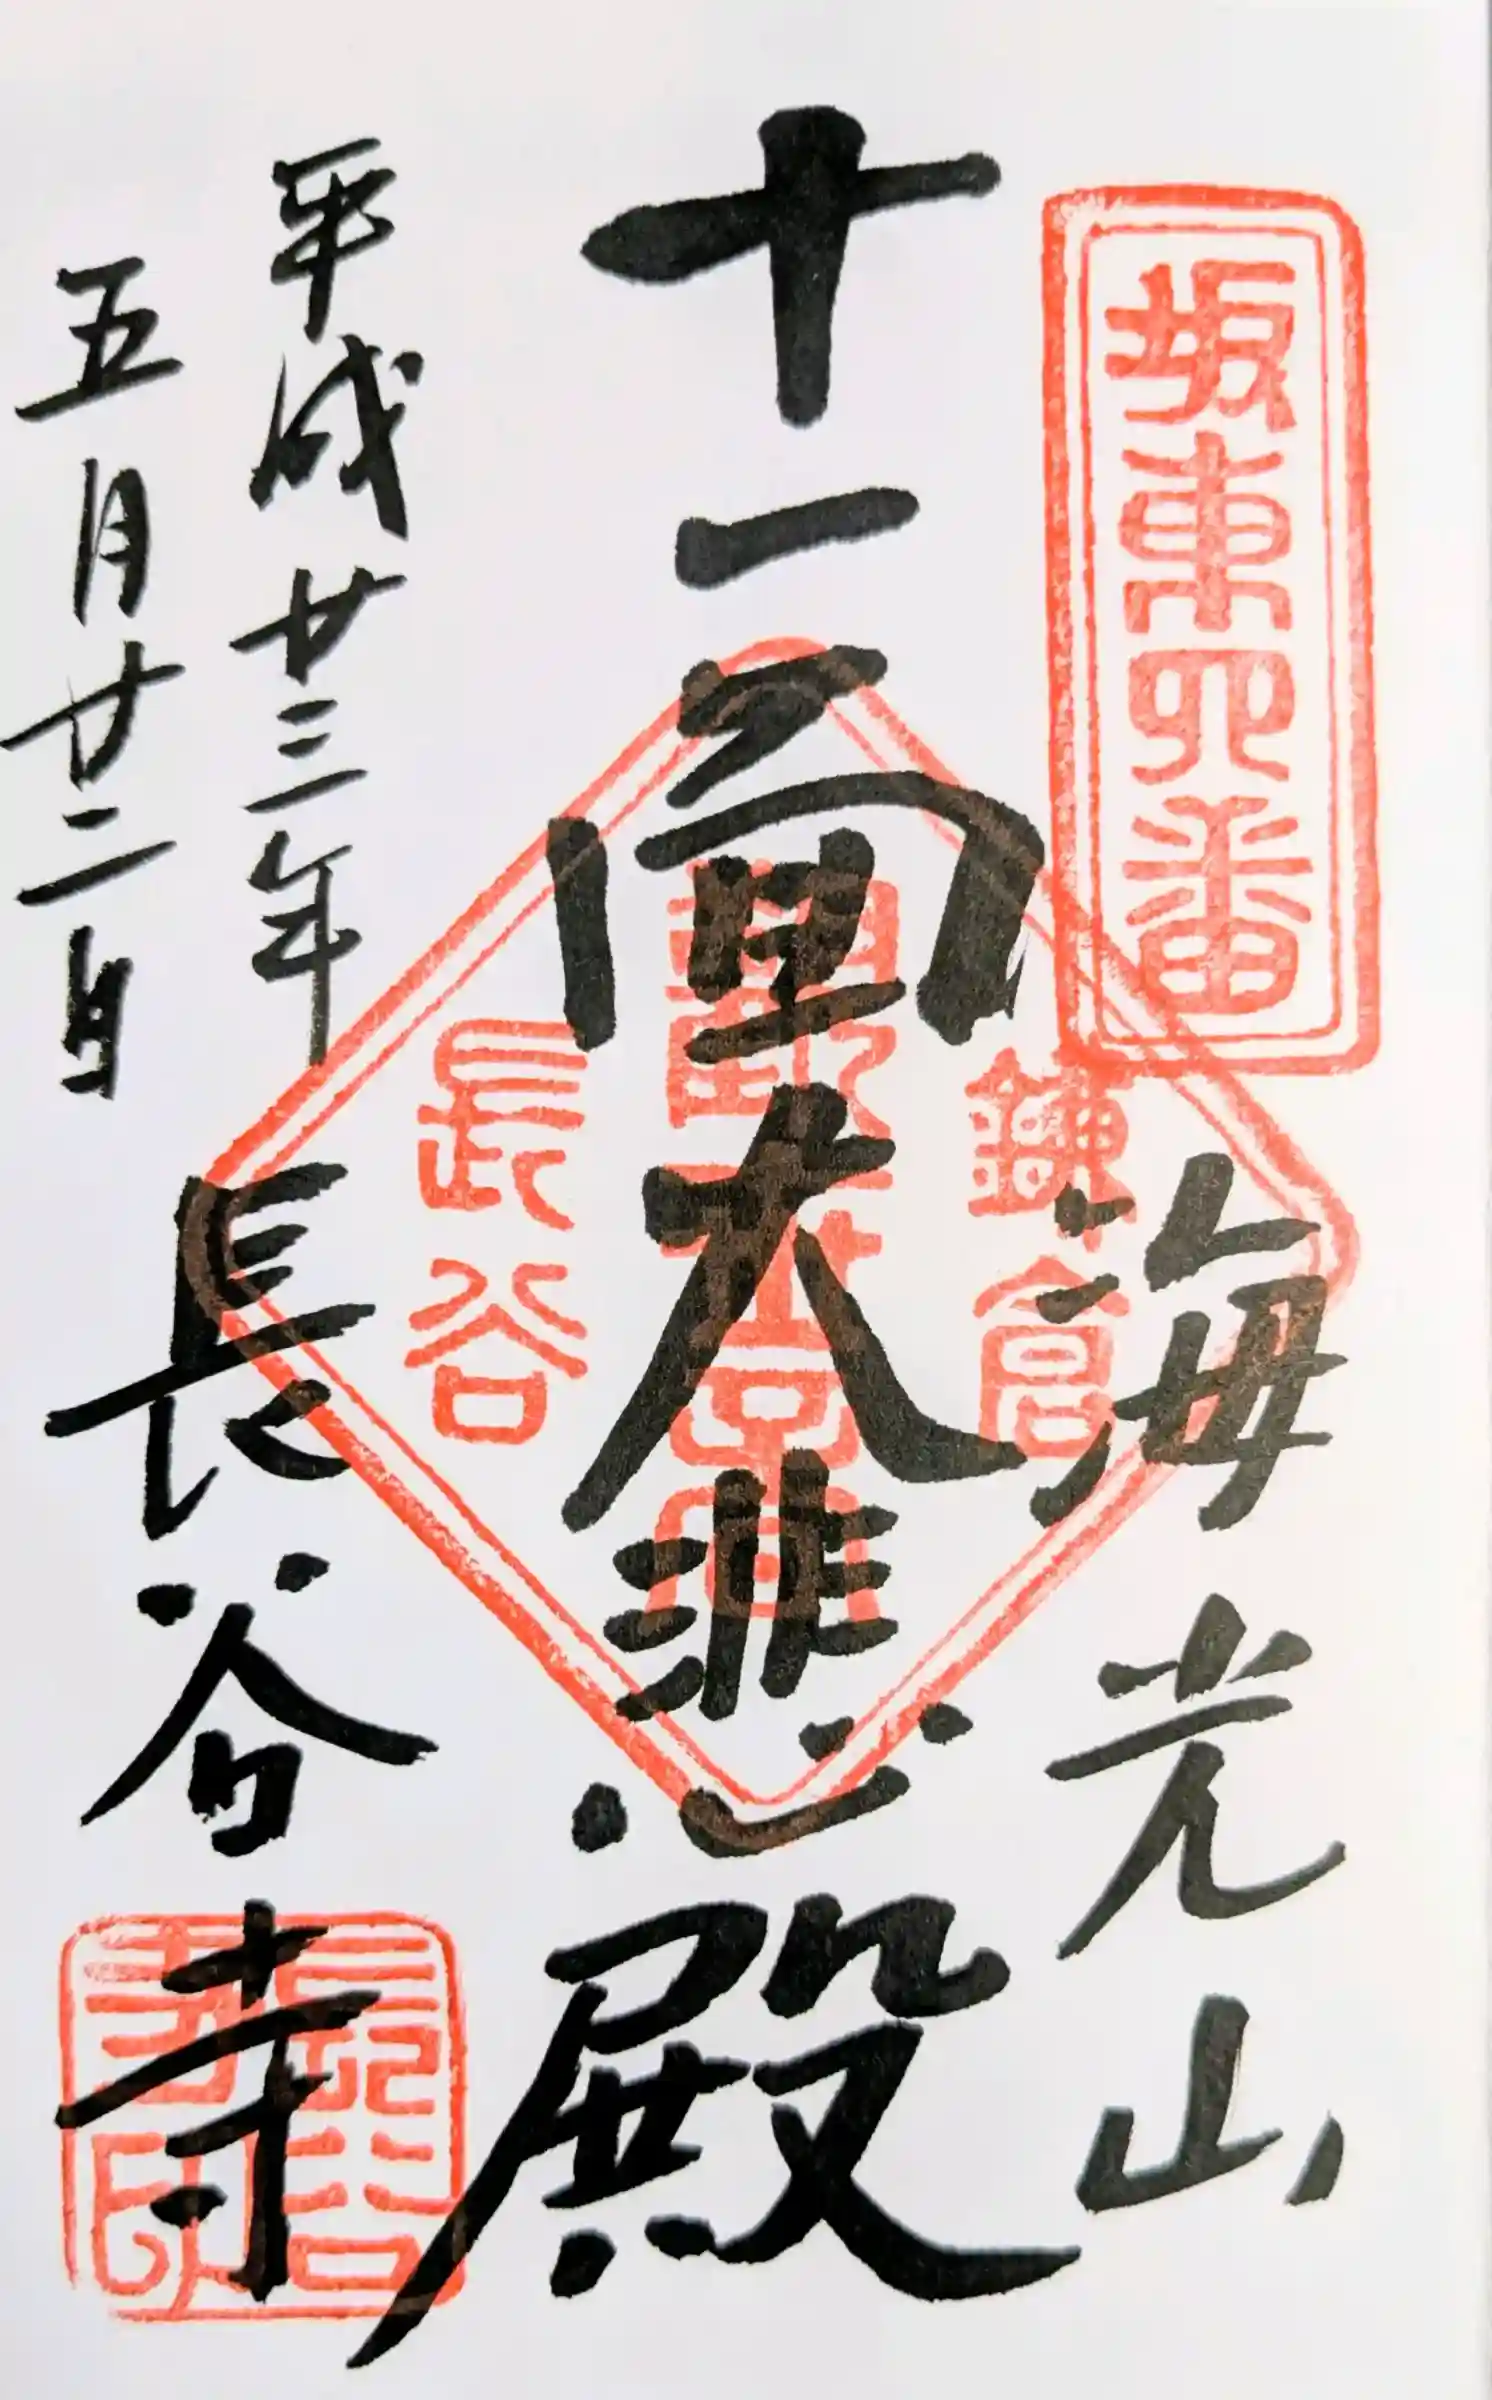 坂東四番
海光山
十一面大悲殿
鎌倉
長谷
平成廿三年
五月廿二日
長谷寺
長谷寺印